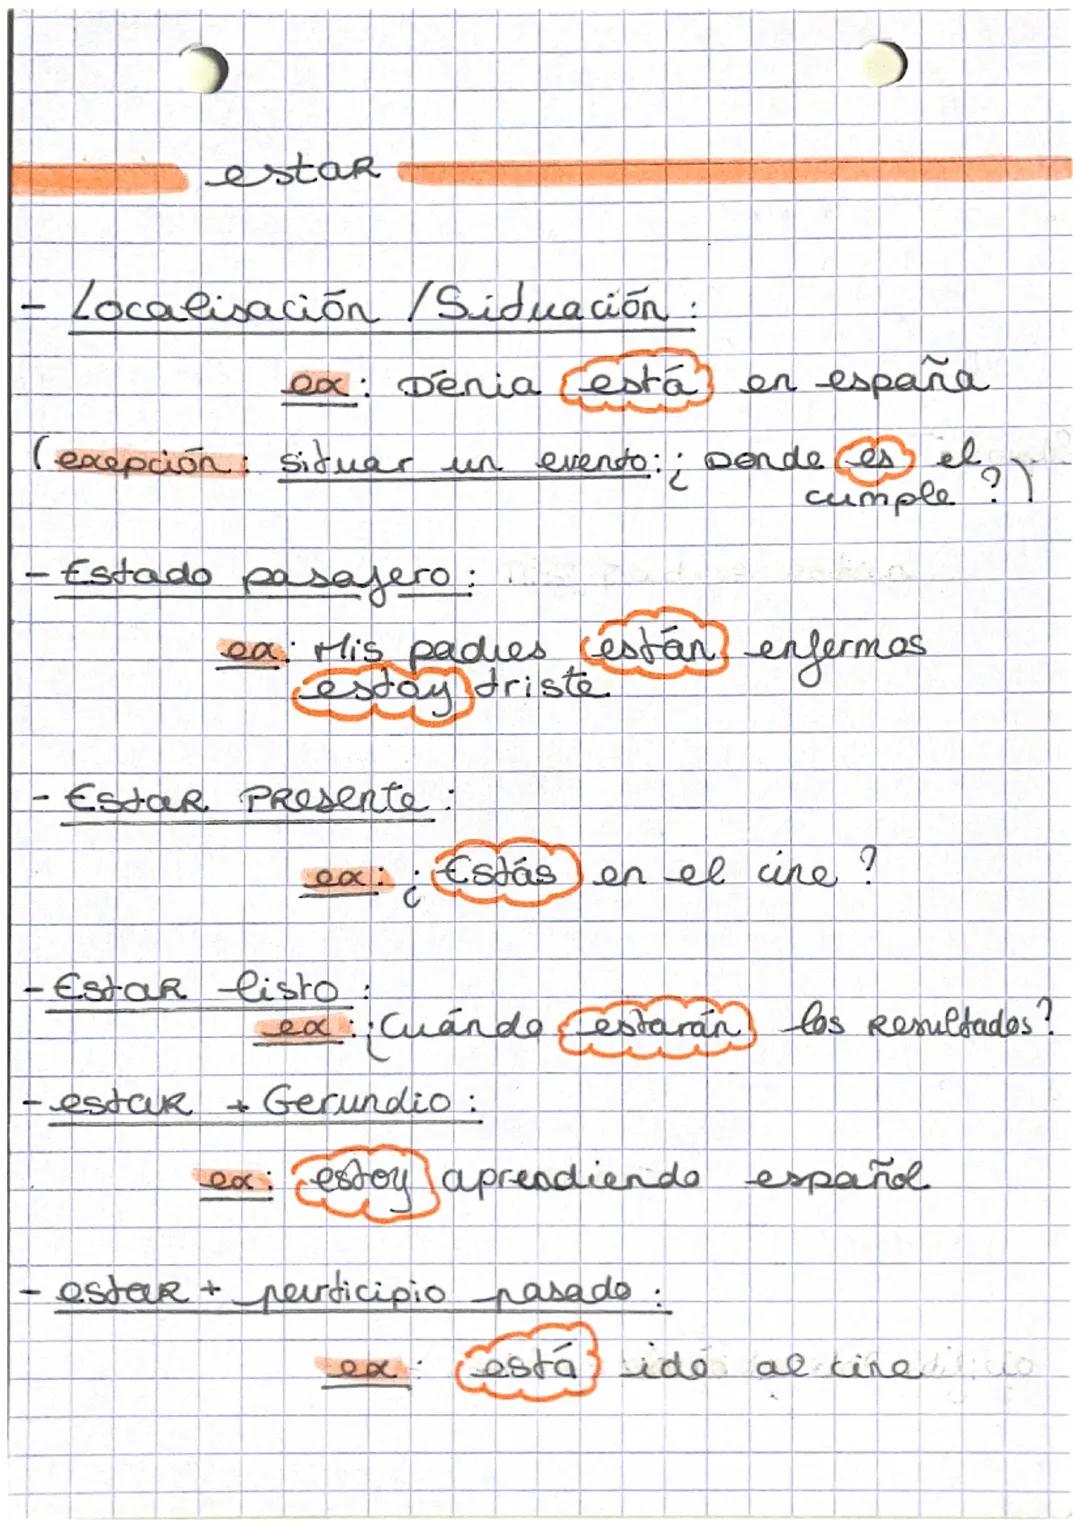 estar
- Localisación / Situación :
ex : Dénia está en españa
(exepción : situar un evento : ¿ Donde es el
cumple ? )
- Estado pasajero :
ex : Mis padres están enfermos
estoy triste
- Estar presente :
ex : ¿ Estás en el cine ?
- Estar listo :
ex : ¿Cuándo estarán los resultados ?
- estar + Gerundio :
ex : estoy aprendiendo español
- estar + participio pasado :
ex : está ido al cine